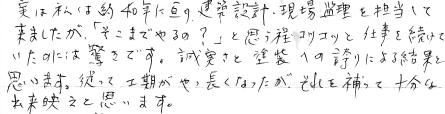 実は私は約40年に亘り建築設計・現場監理を担当して
来ましたが、「そこまでやるの?」と思う程コツコツと仕事を続けて
いたのには驚きです。誠実さと塗装への誇りによる結果と
思います。従って工期がやゝ長くなったが、それを補って十分な
出来映えと思います。